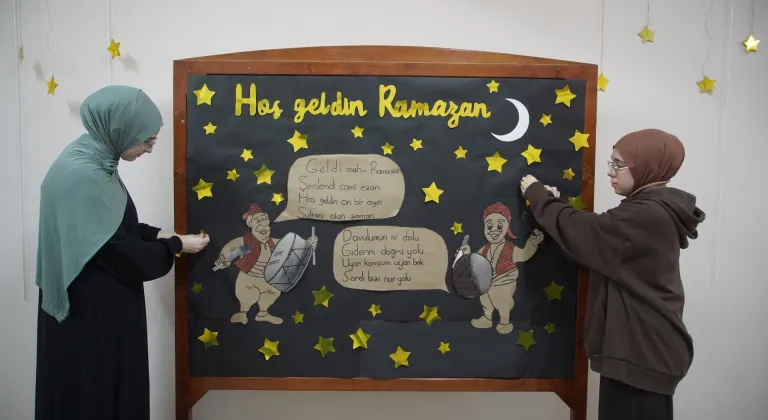 Hoş geldin Ramazan
Geldi mahı Ramazan
Şenlendi cami ezan
Hoş geldin on bir ayın
Sultanı olan zaman
Davulumun ivi dolu
Giderim doğru yolu
Uyan komşum uyan bak
Sardı bizi nur yolu